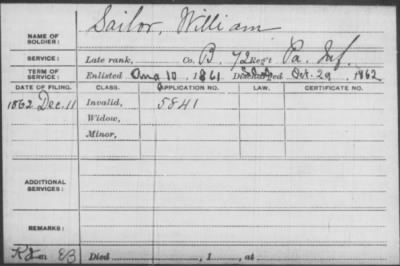 NAME OF SOLDIER: Sailor, William
SERVICE: Late rank, Co. B, 72 Reg't Pa. Inf.
TERM OF SERVICE: Enlisted Aug 10, 1861 Discharged Oct. 29, 1862
DATE OF FILING. CLASS. APPLICATION NO. LAW. CERTIFICATE NO.
1862 Dec. 11 Invalid, 5841
Widow,
Minor,
ADDITIONAL SERVICES:
REMARKS:
Died , 1 , at